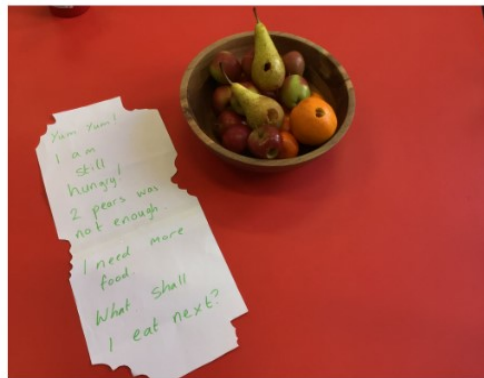 Yum Yum!
I am
still
hungry!
2 pears was
not enough.
I need more
food.
What shall
I eat next?